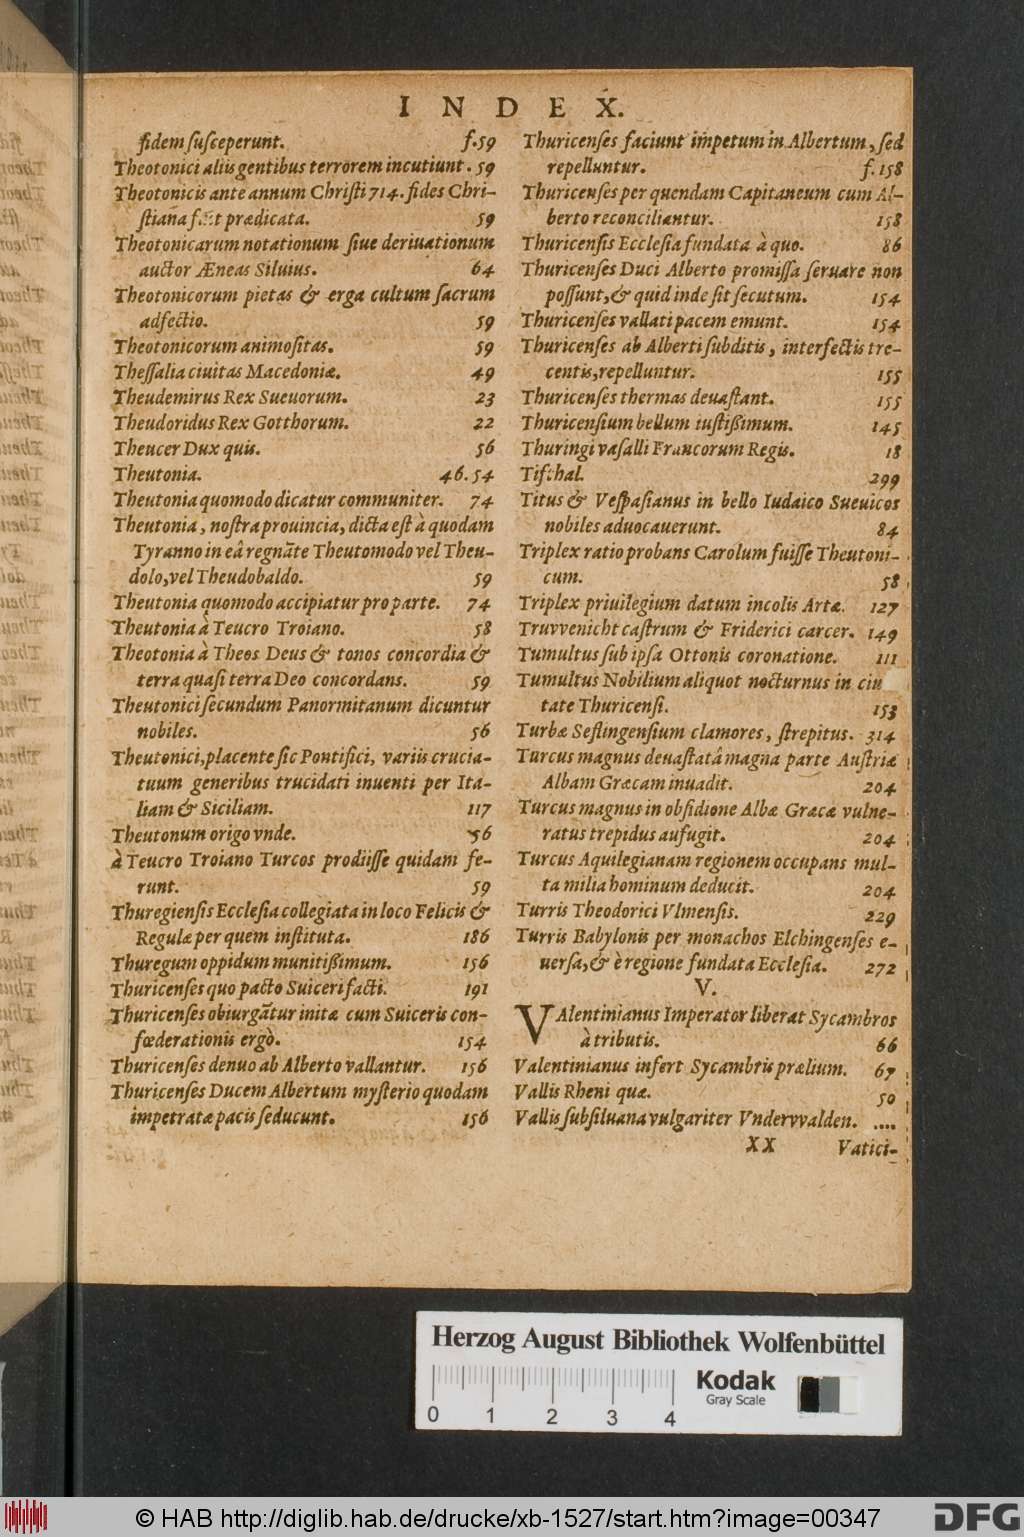 INDEX.
fidem ſuſceperunt. f.59
Theotonici aliis gentibus terrorem incutiunt. 59
Theotonicis ante annum Chriſti 714. fides Chri-
ſtiana prædicata. 59
Theotonicarum notationum ſiue deriuationum
auctor Æneas Siluius. 64
Theotonicorum pietas & erga cultum ſacrum
adfectio. 59
Theotonicorum animoſitas. 59
Theſſalia ciuitas Macedoniæ. 49
Theudemirus Rex Sueuorum. 23
Theudoridus Rex Gotthorum. 22
Theucer Dux quis. 56
Theutonia. 46. 54
Theutonia quomodo dicatur communiter. 74
Theutonia, noſtra prouincia, dicta eſt à quodam
Tyranno in eâ regnāte Theutomodo vel Theu-
dolo, vel Theudobaldo. 59
Theutonia quomodo accipiatur pro parte. 74
Theutonia à Teucro Troiano. 58
Theotonia à Theos Deus & tonos concordia &
terra quaſi terra Deo concordans. 59
Theutonici ſecundum Panormitanum dicuntur
nobiles. 56
Theutonici, placente ſic Pontifici, variis crucia-
tuum generibus trucidati inuenti per Ita-
liam & Siciliam. 117
Theutonum origo vnde. 56
à Teucro Troiano Turcos prodiiſſe quidam fe-
runt. 59
Thuregienſis Eccleſia collegiata in loco Felicis &
Regulæ per quem inſtituta. 186
Thuregum oppidum munitißimum. 156
Thuricenſes quo pacto Suiceri facti. 191
Thuricenſes obiurgātur initæ cum Suiceris con-
fœderationis ergò. 154
Thuricenſes denuo ab Alberto vallantur. 156
Thuricenſes Ducem Albertum myſterio quodam
impetratæ pacis ſeducunt. 156
Thuricenſes faciunt impetum in Albertum, ſed
repelluntur. f. 158
Thuricenſes per quendam Capitaneum cum Al-
berto reconciliantur. 158
Thuricenſis Eccleſia fundata à quo. 86
Thuricenſes Duci Alberto promiſſa ſeruare non
poſſunt, & quid inde ſit ſecutum. 154
Thuricenſes vallati pacem emunt. 154
Thuricenſes ab Alberti ſubditis, interfectis tre-
centis, repelluntur. 155
Thuricenſes thermas deuaſtant. 155
Thuricenſium bellum iuſtißimum. 145
Thuringi vaſalli Francorum Regis. 18
Tiſthal. 299
Titus & Veſpaſianus in bello Iudaico Sueuicos
nobiles aduocauerunt. 84
Triplex ratio probans Carolum fuiſſe Theutoni-
cum. 58
Triplex priuilegium datum incolis Artæ. 127
Truvvenicht caſtrum & Friderici carcer. 149
Tumultus ſub ipſa Ottonis coronatione. 111
Tumultus Nobilium aliquot nocturnus in ciu
tate Thuricenſi. 153
Turbæ Seflingenſium clamores, ſtrepitus. 314
Turcus magnus deuaſtatâ magna parte Auſtriæ
Albam Græcam inuadit. 204
Turcus magnus in obſidione Albæ Græcæ vulne-
ratus trepidus aufugit. 204
Turcus Aquilegianam regionem occupans mul-
ta milia hominum deducit. 204
Turris Theodorici Vlmenſis. 229
Turris Babylonis per monachos Elchingenſes e-
uerſa, & è regione fundata Eccleſia. 272
V.
VAlentinianus Imperator liberat Sycambros
à tributis. 66
Valentinianus infert Sycambris prælium. 67
Vallis Rheni quæ. 50
Vallis ſubſiluana vulgariter Vndervvalden. ....
XX Vatici-
Herzog August Bibliothek Wolfenbüttel
0 1 2 3 4
Kodak
Gray Scale
© HAB http://diglib.hab.de/drucke/xb-1527/start.htm?image=00347
DFG